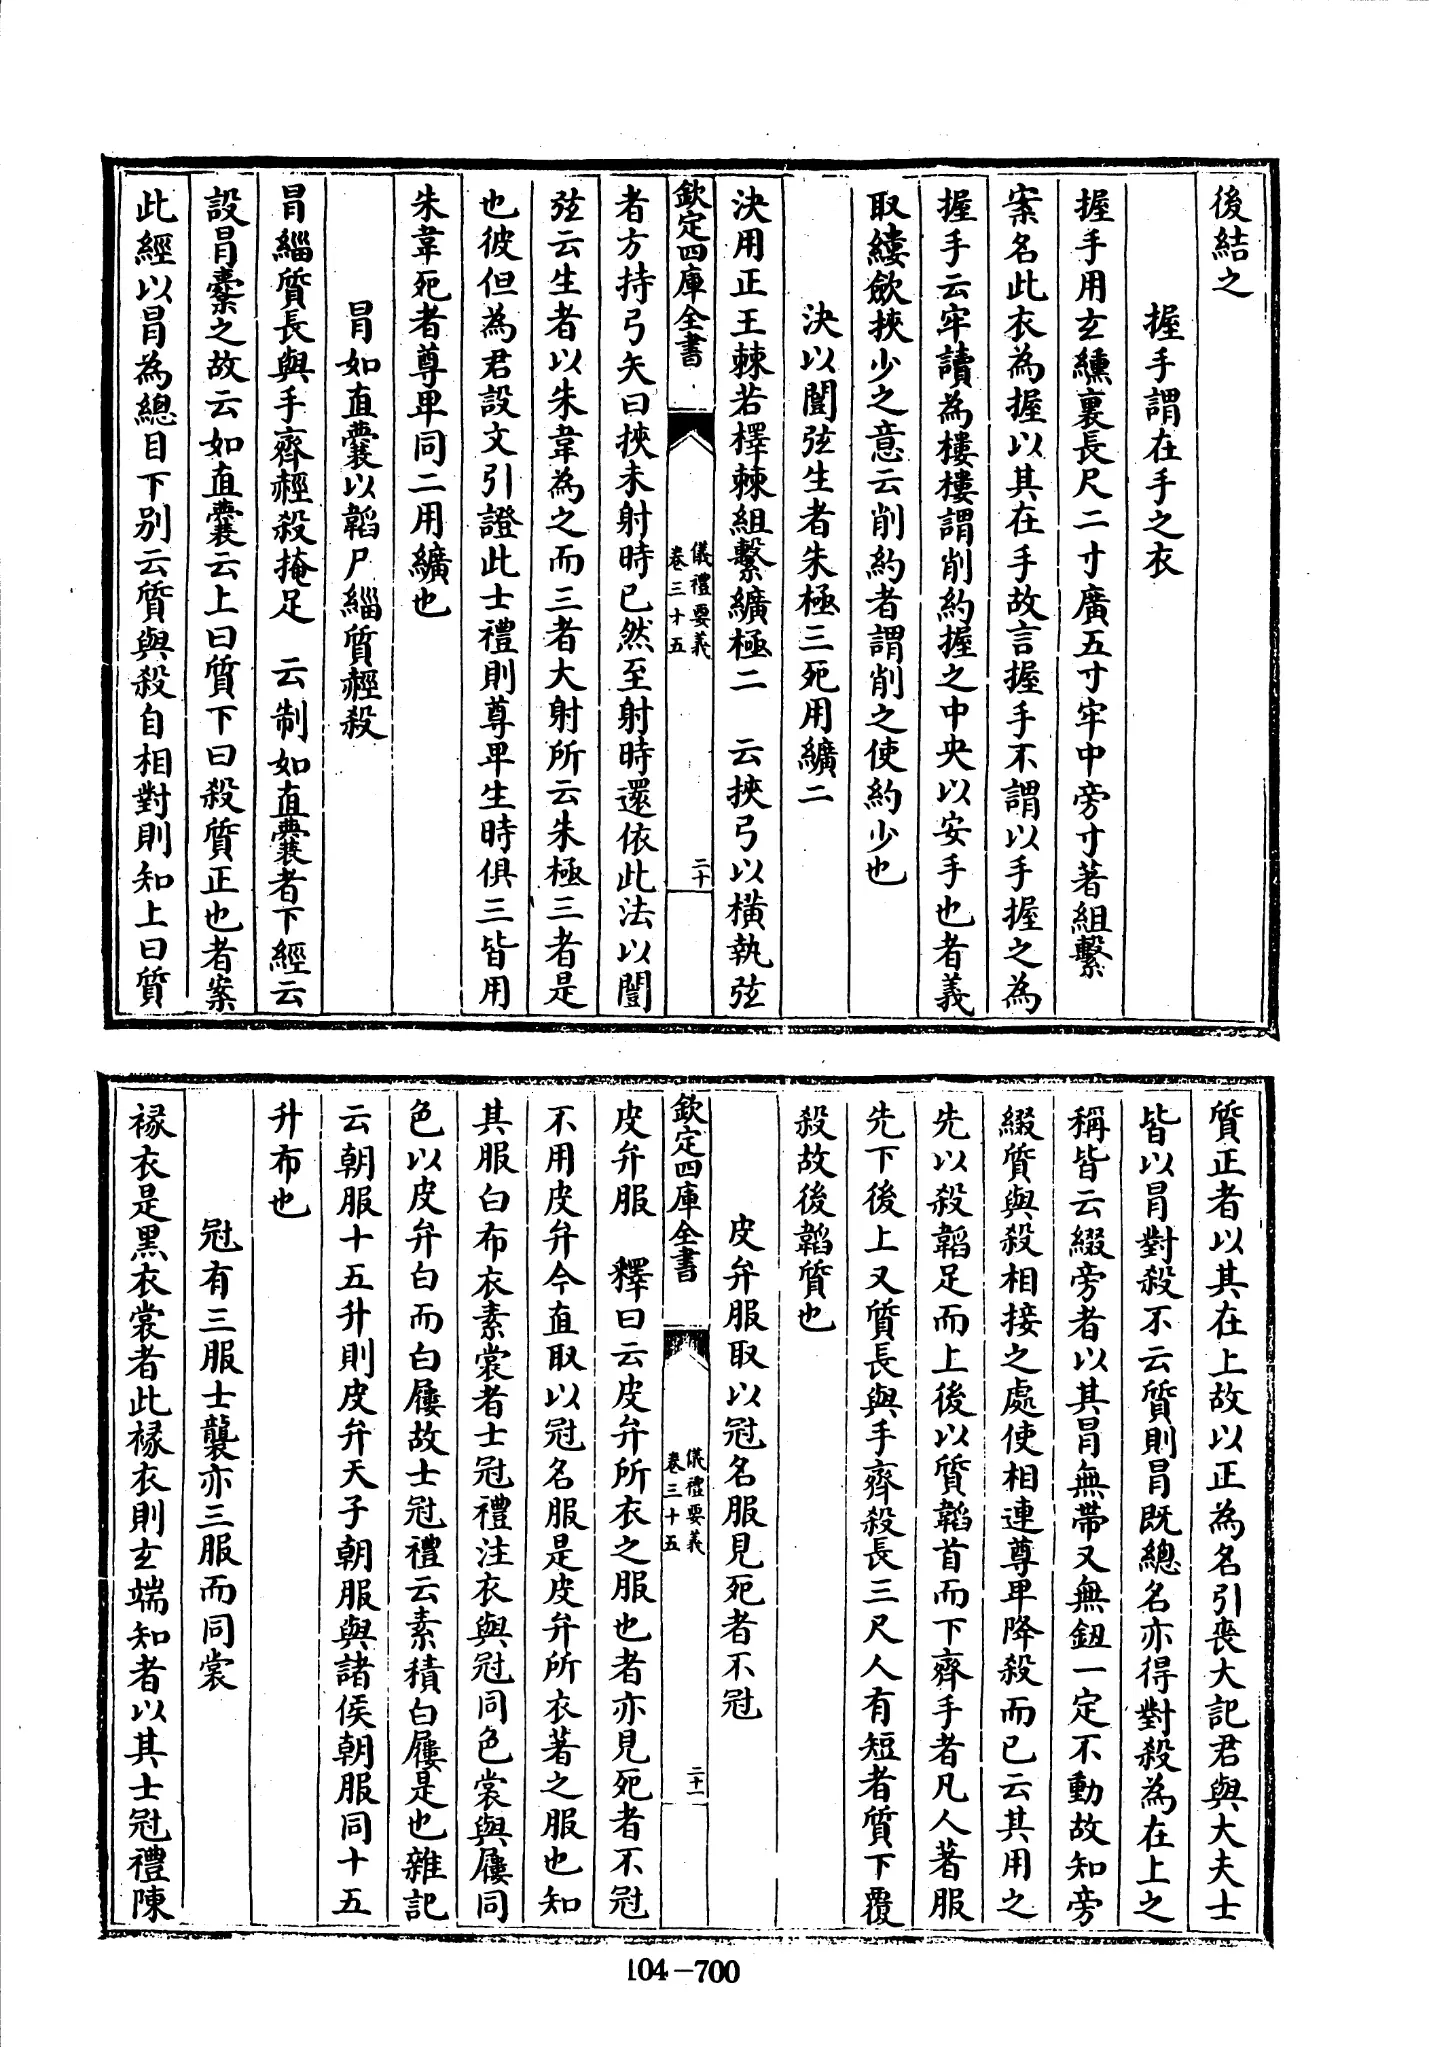 後結之
握手謂在手之衣
握手用玄纁裏長尺二寸廣五寸牢中旁寸著組繫
案名此衣為握以其在手故言握手不謂以手握之為
握手云牢讀為樓樓謂削約握之中央以安手也者義
取縷斂挾少之意云削約者謂削之使約少也
決以闓弦生者朱極三死用纊二
決用正王棘若檡棘組繫纊極二　云挾弓以橫執弦
欽定四庫全書
儀禮要義
卷三十五
二十
者方持弓矢曰挾未射時已然至射時還依此法以闓
弦云生者以朱韋為之而三者大射所云朱極三者是
也彼但為君設文引證此士禮則尊卑生時俱三皆用
朱韋死者尊卑同二用纊也
冒如直囊以韜尸緇質䞓殺
冒緇質長與手齊䞓殺掩足　云制如直囊者下經云
設冒櫜之故云如直囊云上曰質下曰殺質正也者案
此經以冒為總目下別云質與殺自相對則知上曰質
質正者以其在上故以正為名引喪大記君與大夫士
皆以冒對殺不云質則冒既總名亦得對殺為在上之
稱皆云綴旁者以其冒無帶又無鈕一定不動故知旁
綴質與殺相接之處使相連尊卑降殺而已云其用之
先以殺韜足而上後以質韜首而下齊手者凡人著服
先下後上又質長與手齊殺長三尺人有短者質下覆
殺故後韜質也
皮弁服取以冠名服見死者不冠
欽定四庫全書
儀禮要義
卷三十五
二十一
皮弁服　釋曰云皮弁所衣之服也者亦見死者不冠
不用皮弁今直取以冠名服是皮弁所衣著之服也知
其服白布衣素裳者士冠禮注衣與冠同色裳與屨同
色以皮弁白而白屨故士冠禮云素積白屨是也雜記
云朝服十五升則皮弁天子朝服與諸侯朝服同十五
升布也
冠有三服士襲亦三服而同裳
褖衣是黑衣裳者此褖衣則玄端知者以其士冠禮陳
104-700